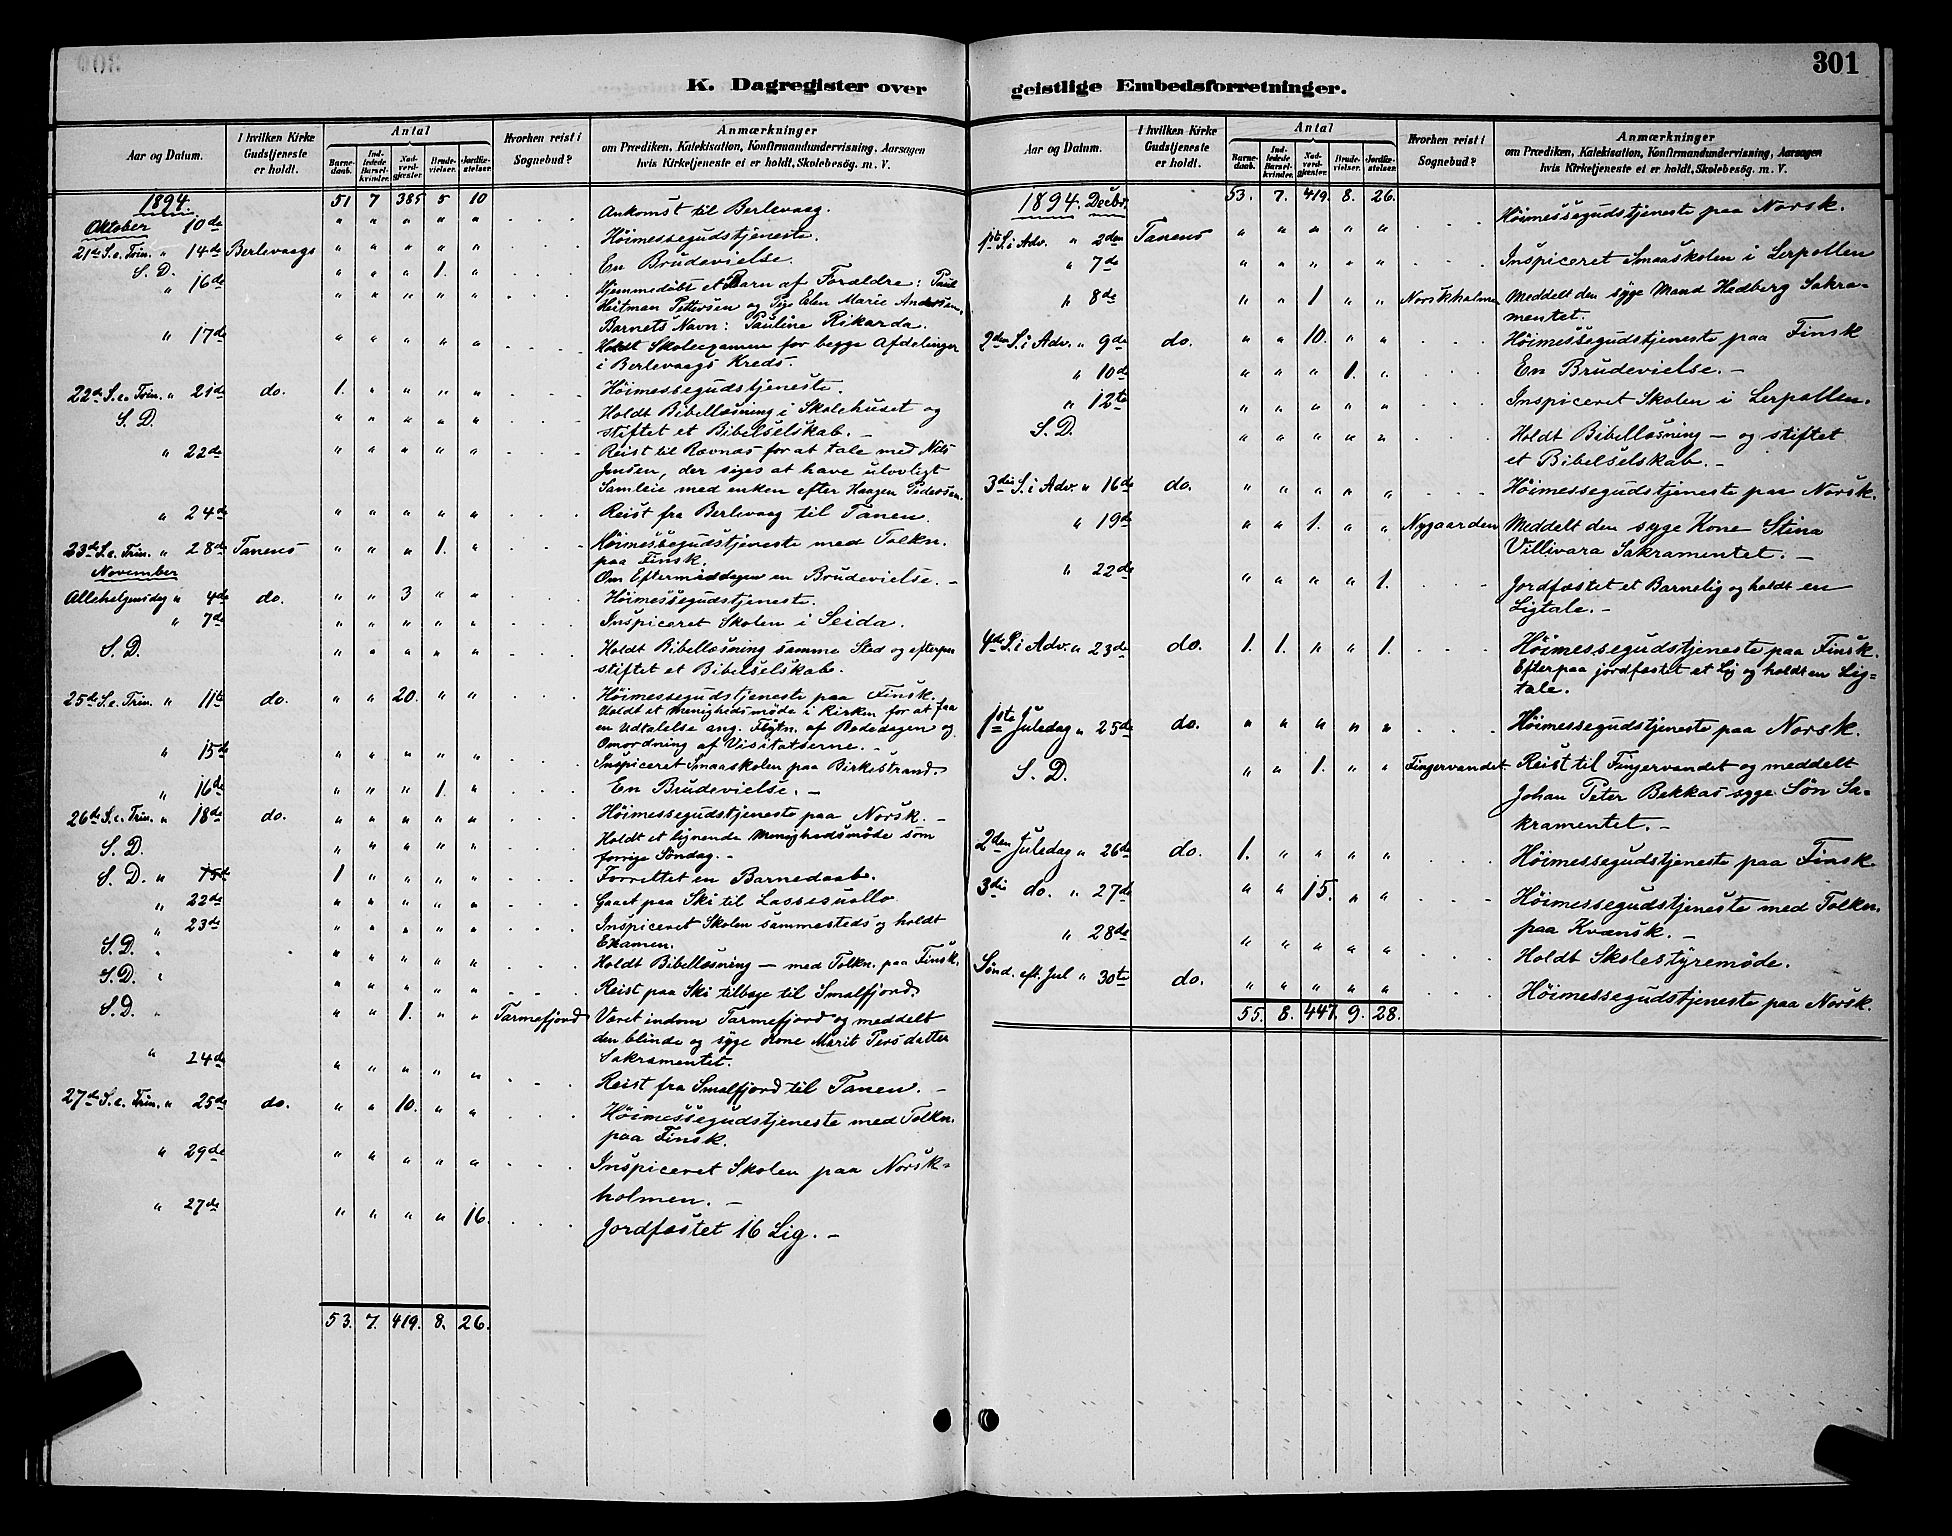 301
K. Dagregister over
geistlige Embedsforretninger.
Aar og Datum.
I hvilken Kirke Gudstjeneste er holdt.
Antal
Barnedaab.
Indledede Barselkvinder.
Nadverdgjæster.
Brudevielser.
Jordfæstelser.
Hvorhen reist i Sognebud?
Anmærkninger
om Prædiken, Katekisation, Konfirmandundervisning, Aarsagen
hvis Kirketjeneste ei er holdt, Skolebesøg. m. V.
1894. 51 7 385 5 10
Oktober 10de " " " " " Ankomst til Berlevaag.
21de S. e. Trin. " 14de Berlevaags " " " " " Høimessegudstjeneste.
S. D. " " " 1. " En Brudevielse.
" 16de " " " " " Hjemmedøbt et Barn af Forældre: Paul
Heitman Pettersen og Pige Elen Marie Andersen,
Barnets Navn: Pauline Rikarda.
" 17de " " " " " Holdt Skoleexamen for begge Afdelinger
i Berlevaags Kreds.
22de S. e. Trin. " 21de do. 1. " " " " Høimessegudstjeneste.
S. D. " " " " " Holdt Bibellæsning i Skolehuset og
stiftet et Bibelselskab. –
" 22de " " " " " Reist til Ravnæs for at tale med Nils
Jensen, der siges at have ulovligt
Samleie med enken efter Haagen Pedersen.
" 24de " " " " " Reist fra Berlevaag til Tanen.
23de S. e. Trin. " 28de Tanens " " " 1. " Høimessegudstjeneste med Tolkn.
paa Finsk.
November Om Eftermiddagen en Brudevielse. –
Allehelgensdag " 4de do. " " 3 " " Høimessegudstjeneste.
" 7de " " " " " Inspiceret Skolen i Seida.
S. D. " " " " " Holdt Bibellæsning samme Sted og efterpaa
stiftet et Bibelselskab.
25de S. e. Trin. " 11te do. " " 20. " " Høimessegudstjeneste paa Finsk.
Holdt et Menighedsmøde i Kirken for at faa
en Udtalelse ang. Flytn. af Bededagen og
Omordning af Visitatserne. –
" 15de " " " " " Inspiceret Smaaskolen paa Birkestrand.
" 16de " " " 1. " En Brudevielse. –
26de S. e. Trin. " 18de do. " " " " " Høimessegudstjeneste paa Norsk. –
S. D. " " " " " Holdt et lignende Menighedsmøde som
forrige Søndag. –
S. D. " 1 " " " " Forrettet en Barnedaab.
" 22de " " " " " Gaaet paa Ski til Lassesuollo.
" 23de " " " " " Inspiceret Skolen sammesteds og holdt
Examen.
S. D. " " " " " " Holdt Bibellæsning – med Tolkn. paa Finsk.
S. D. " " " " " " Reist paa Ski tilbage til Smalfjord.
S. D. " " " 1. " " Tarmefjord Været indom Tarmefjord og meddelt
den blinde og syge Kone Marit Persdatter
Sakramentet.
" 24de " " " " " Reist fra Smalfjord til Tanen. –
27de S. e. Trin. " 25de do. " " 10. " " Høimessegudstjeneste med Tolkn.
paa Finsk.
" 29de " " " " " Inspiceret Skolen paa Norsk-
holmen. –
" 27de " " " " 16. Jordfæstet 16 Lig. –
53. 7. 419. 8. 26.
Aar og Datum.
I hvilken Kirke Gudstjeneste er holdt.
Antal
Barnedaab.
Indledede Barselkvinder.
Nadverdgjæster.
Brudevielser.
Jordfæstelser.
Hvorhen reist i Sognebud?
Anmærkninger
om Prædiken, Katekisation, Konfirmandundervisning, Aarsagen
hvis Kirketjeneste ei er holdt, Skolebesøg. m. V.
1894. Decbr. 53. 7. 419. 8. 26.
1ste S. i Adv. " 2den Tanens " " " " " Høimessegudstjeneste paa Norsk.
" 7de " " " " " Inspiceret Smaaskolen i Lerpollen
" 8de " " 1 " " Norskholmen Meddelt den syge Mand Hedberg Sakra-
mentet.
2den S. i Adv. " 9de do. " " 10. " " Høimessegudstjeneste paa Finsk
" 10de " " " 1. " En Brudevielse. –
" 12te " " " " " Inspiceret Skolen i Lerpollen.
S. D. " " " " " Holdt Bibellæsning – og stiftet
et Bibelselskab. –
3die S. i Adv. " 16de do. " " " " " Høimessegudstjeneste paa Norsk.
" 19de " " 1. " " Nygaarden Meddelt den syge Kone Stina
Villivara Sakramentet. –
" 22de " " " " 1. Jordfæstet et Barnelig og holdt en
Ligtale. –
4de S. i Adv. " 23de do. 1. 1. " " 1. Høimessegudstjeneste paa Finsk.
Efterpaa jordfæstet et Lig og holdt en Lig=
tale.
1ste Juledag " 25de do. " " " " " Høimessegudstjeneste paa Norsk.
S. D. " " 1. " " Fingervandet Reist til Fingervandet og meddelt
Johan Peter Bekkas syge Søn Sa-
kramentet. –
2den Juledag " 26de do. 1. " " " " Høimessegudstjeneste paa Finsk
3die do. " 27de " " 15. " " Høimessegudstjeneste med Tolkn.
paa Kvænsk. –
" 28de " " " " " Holdt Skolestyremøde.
Sønd. eft. Jul " 30te do. " " " " " Høimessegudstjeneste paa Norsk.
55. 8. 447. 9. 28.